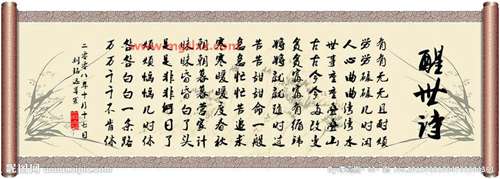 醒世诗
有有无无且耐烦
劳劳碌碌几时闲
人心曲曲弯弯水
世事重重叠叠山
古古今今多改变
贫贫富富有循环
将将就就随时过
苦苦甜甜命一般
急急忙忙苦追求
寒寒暖暖度春秋
朝朝暮暮营家计
昧昧昏昏白了头
是是非非何日了
烦烦恼恼几时休
明明白白一条路
万万千千不肯修
二零零八年十月十七日
昵图网